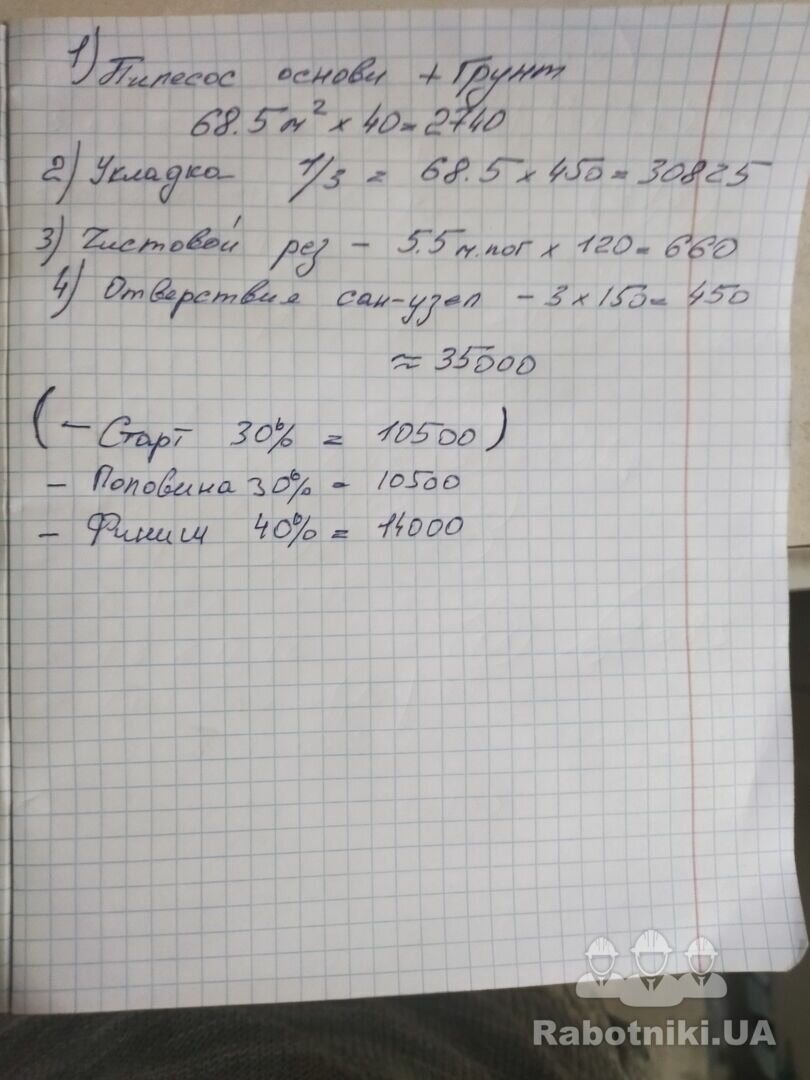 1) Пилесос основи + Грунт
68.5 м² x 40 = 2740
2) Укладка 1/3 = 68.5 x 450 = 30825
3) Чистовой рез - 5.5 м.пог x 120 = 660
4) Отверствия сан-узел - 3 x 150 = 450
≈ 35000
(- Старт 30% = 10500)
- Поповина 30% = 10500
- Финиш 40% = 14000
Rabotniki.UA